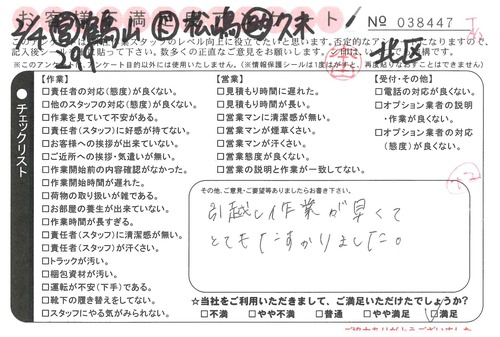 お客様満足 ト
№ 038447
5/4 鶴山 松嶋 久未
299
北区
記入後シールを 多くの率直なご意見をお願い
※このアンケートは、アンケート目的以外には使用いたしません。(※情報保護シールは1度はがすと、再度貼りなおすことはできません)
チェックリスト
【作業】
□責任者の対応(態度)が良くない。
□他のスタッフの対応(態度)が良くない。
□作業を見ていて不安がある。
□責任者(スタッフ)に好感が持てない。
□お客様への挨拶が出来ていない。
□ご近所への挨拶・気遣いが無い。
□作業開始前の内容確認がなかった。
□作業開始時間が遅れた。
□荷物の取り扱いが雑である。
□お部屋の養生が出来ていない。
□作業時間が長すぎる。
□責任者(スタッフ)に清潔感が無い。
□責任者(スタッフ)が汗くさい。
□トラックが汚い。
□梱包資材が汚い。
□運転が不安(下手)である。
□靴下の履き替えをしてない。
□スタッフにやる気がみられない。
【営業】
□見積もり時間に遅れた。
□見積もり時間が長い。
□営業マンに清潔感が無い。
□営業マンが煙草くさい。
□営業マンが汗くさい。
□営業態度が良くない。
□営業の説明と作業が一致してない。
【受付・その他】
□電話の対応が良くない。
□オプション業者の説明・作業が良くない。
□オプション業者の対応(態度)が良くない。
その他、ご意見・ご要望等ありましたらお書き下さい。
引越し作業が早くて
とてもたすかりました。
☆当社をご利用いただきまして、ご満足いただけたでしょうか?
□不満 □やや不満 □普通 □やや満足 □満足
ご協力ありがとうございました